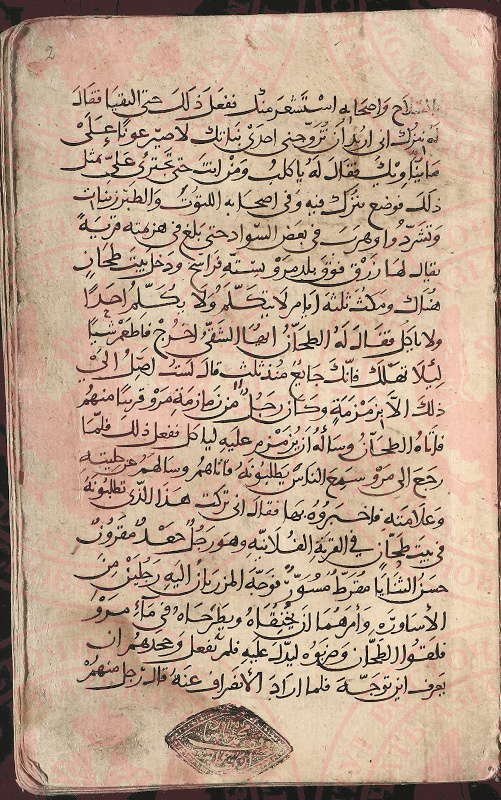 2
السلاح واصحابه استسعر منك ففعل ذلك حتى التقيا فقال
له نيزك اني اريد أن تزوجني احدى بناتك لاصير عونا على
ما بينك فقال له يا كلب ومن انت حتى تجترى علي بمثل
ذلك فوضع نيزك فيه وفي اصحابه اللتوت والطبرزينات
وتشردوا وهرب في بعض السواد حتى بلغ في هزيمته قرية
يقال لها زرق فوق بلد مرو بستة فراسخ ودخل بيت طحان
هناك ومكث ثلثة أيام لا يتكلم ولا يكلم احدا
ولا ياكل فقال له الطحان ايها الشقي اخرج فاطعم شيئا
ليلا تهلك فانك جايع منذ ثلث قال لست اصل الى
ذلك الا بزمزمة وكان رجل من زمازمة مرو قريبا منهم
فاتاه الطحان وساله أن يزمزم عليه لياكل ففعل ذلك فلما
رجع الى مرو سمع الناس يطلبونه فاتاهم وسالهم عن حليته
وعلامته فاخبروه بها فقال اني تركت هذا الذي تطلبونه
في بيت طحان في القرية الفلانية وهو رجل جعد مقرون
حسن الثنايا مقرط مسور فوجه المرزبان اليه رجلين من
الأساورة وأمرهما أن يخنقاه ويطرحاه في ماء مرو
فلقوا الطحان وضربوه ليدل عليه فلم يفعل وجحدهم ان
يعرف اين توجه فلما اراد الانصراف عنه قال رجل منهم